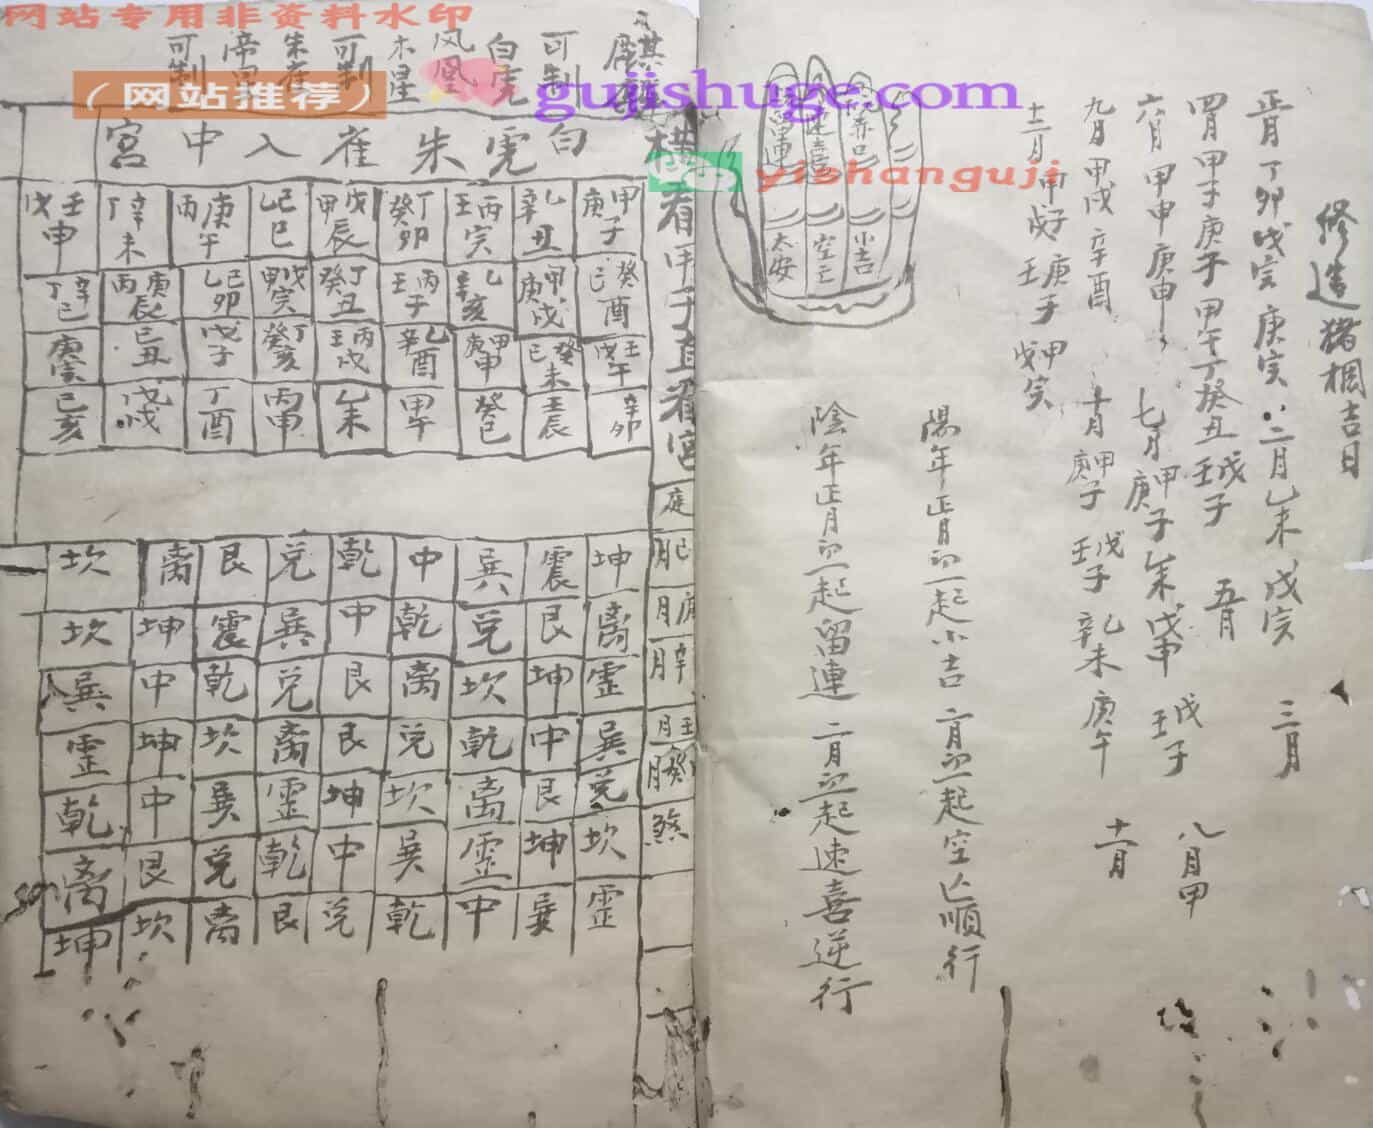 网站专用非资料水印
（网站推荐）
gujishuge.com
yishanguji
修造猪椆吉日
正月丁卯戊寅庚寅二月乙未戊寅三月
四月甲子庚子甲午丁癸丑壬戊子五月
六月甲申庚申七月甲庚子乙未戊申壬戊子八月甲
九月甲戌辛酉十月甲庚子壬戊子辛乙未庚午十一月
十二月甲戊子壬庚子戊甲寅
留連 速喜 赤口
大安 空亡 小吉
陽年正月初一起小吉 二月初一起空亡順行
陰年正月初一起留連 二月初一起速喜逆行
麒麟
可制
白虎
凤凰
木星
可制
朱雀
帝星
可制
横看甲子直看宫
白虎朱雀入中宫
庚甲子 乙辛丑 壬丙寅 癸丁卯 甲戊辰 乙己巳 丙庚午 丁辛未 戊壬申
己癸酉 庚甲戌 辛乙亥 壬丙子 癸丁丑 甲戊寅 乙己卯 丙庚辰 丁辛巳
戊壬午 己癸未 庚甲申 辛乙酉 壬丙戌 癸丁亥 戊子 己丑 庚寅
辛卯 壬辰 癸巳 甲午 乙未 丙申 丁酉 戊戌 己亥
庭
月己
月庚
月辛
月壬
月癸
煞
坤 震 巽 中 乾 兑 艮 离 坎
离 艮 兑 乾 中 巽 震 坤 坎
震 坤 坎 离 艮 兑 乾 中 巽
巽 中 乾 兑 艮 离 坎 坤 震
兑 艮 离 坎 坤 震 巽 中 乾
坎 坤 震 巽 中 乾 兑 艮 离
震 巽 中 乾 兑 艮 离 坎 坤